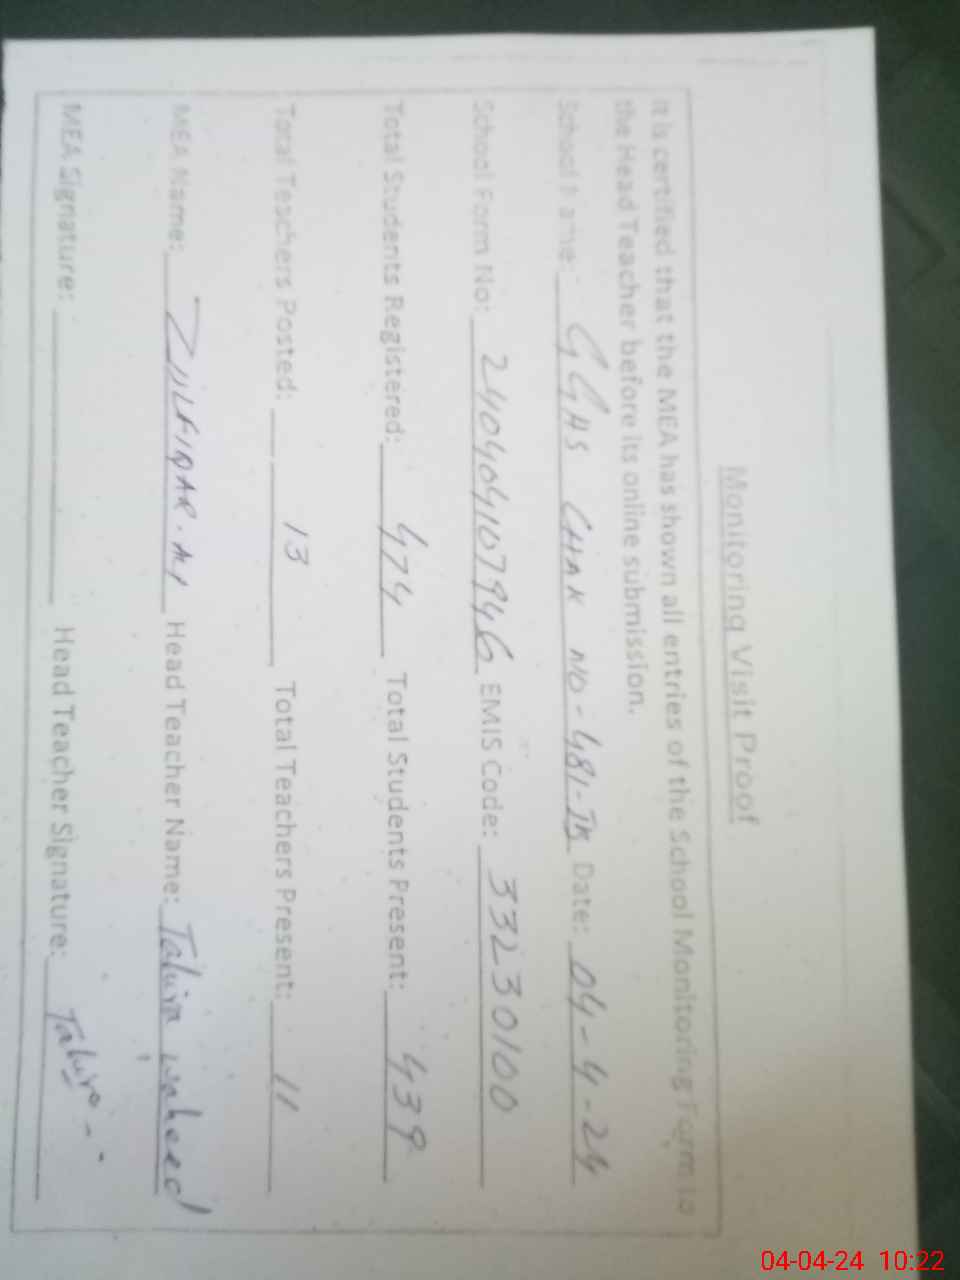 Monitoring Visit Proof
It is certified that the MEA has shown all entries of the School Monitoring Form to
the Head Teacher before its online submission.
School Name: GGHS CHAK NO-481-JB Date: 04-4-24
School Form No: 240404107946 EMIS Code: 33230100
Total Students Registered: 474 Total Students Present: 439
Total Teachers Posted: 13 Total Teachers Present: 11
MEA Name: ZULFIQAR. ALI Head Teacher Name: Tahira waheed
MEA Signature: Head Teacher Signature: Tahira
04-04-24 10:22